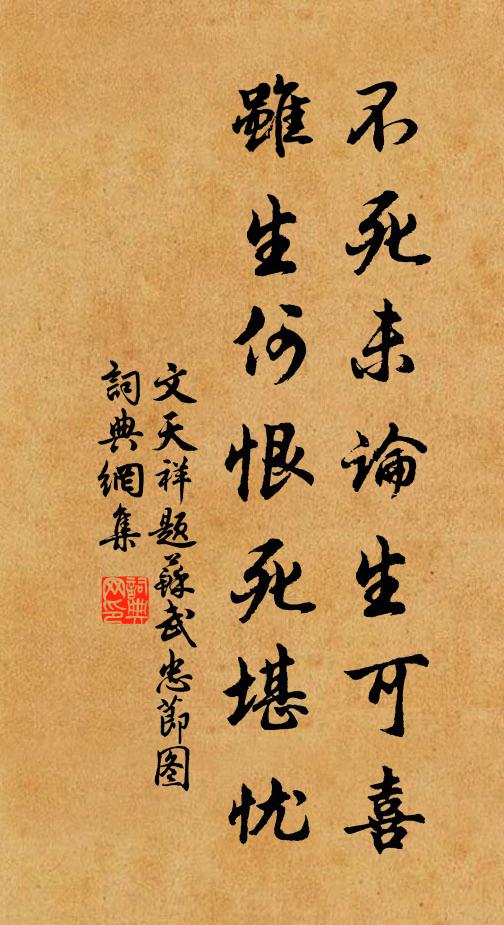 不死未論生可喜
雖生何恨死堪忧
文天祥题蘇武忠節图
詞典網集
詞典网印